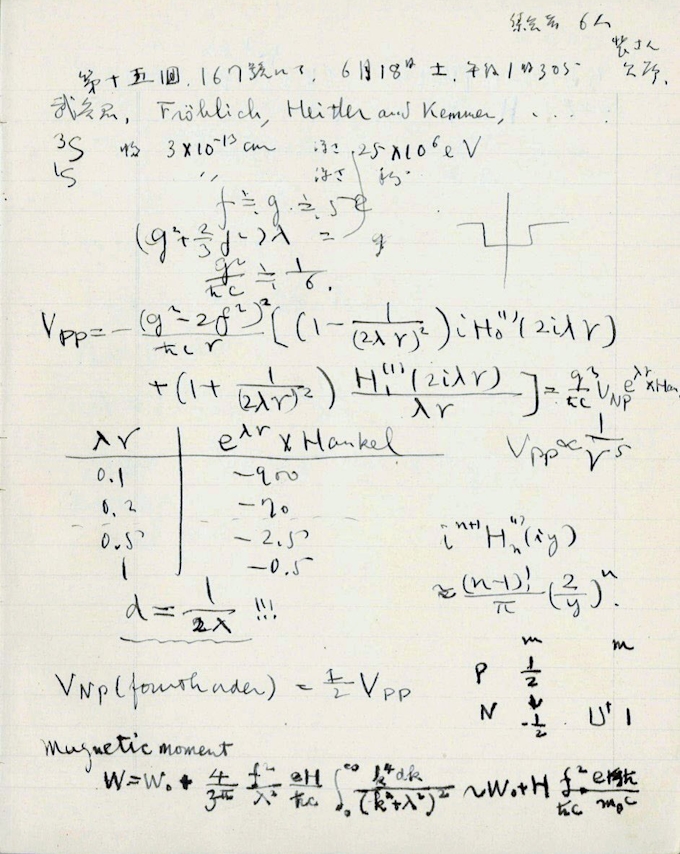 6人
第十五回. 167 6月18日 土. 午後1時305
Fröhlich, Heitler and Kemmer, . . . .
³S 3×10⁻¹³ cm 深さ 25×10⁶ eV
¹S 〃 深さ
f ≒ g ≒ 5e
(g² + 2/3 f²)λ =
g²/ħc ≒ 1/6.
V_PP = − (g² − 2f²)²/ħc r [ (1 − 1/(2λr)²) iH₀⁽¹⁾(2iλr)
+ (1 + 1/(2λr)²) H₁⁽¹⁾(2iλr)/λr ] = g²/ħc V_NP e^λr × Han.
V_PP ∝ 1/r⁵
λr | e^λr × Hankel
0.1 | −900
0.2 | −70
0.5 | −2.5
1 | −0.5
d = 1/2λ !!!
iⁿ⁺¹ Hₙ⁽¹⁾(iy)
≈ (n−1)!/π (2/y)ⁿ.
V_NP (fourth order) = 1/2 V_PP
m m
P 1/2
N −1/2 . U† 1
Magnetic moment
W = W₀ + 4/3π f²/λ² eH/ħc ∫₀^∞ k⁴dk/(k²+λ²)² ~ W₀ + H f²/ħc eħ/m_p c